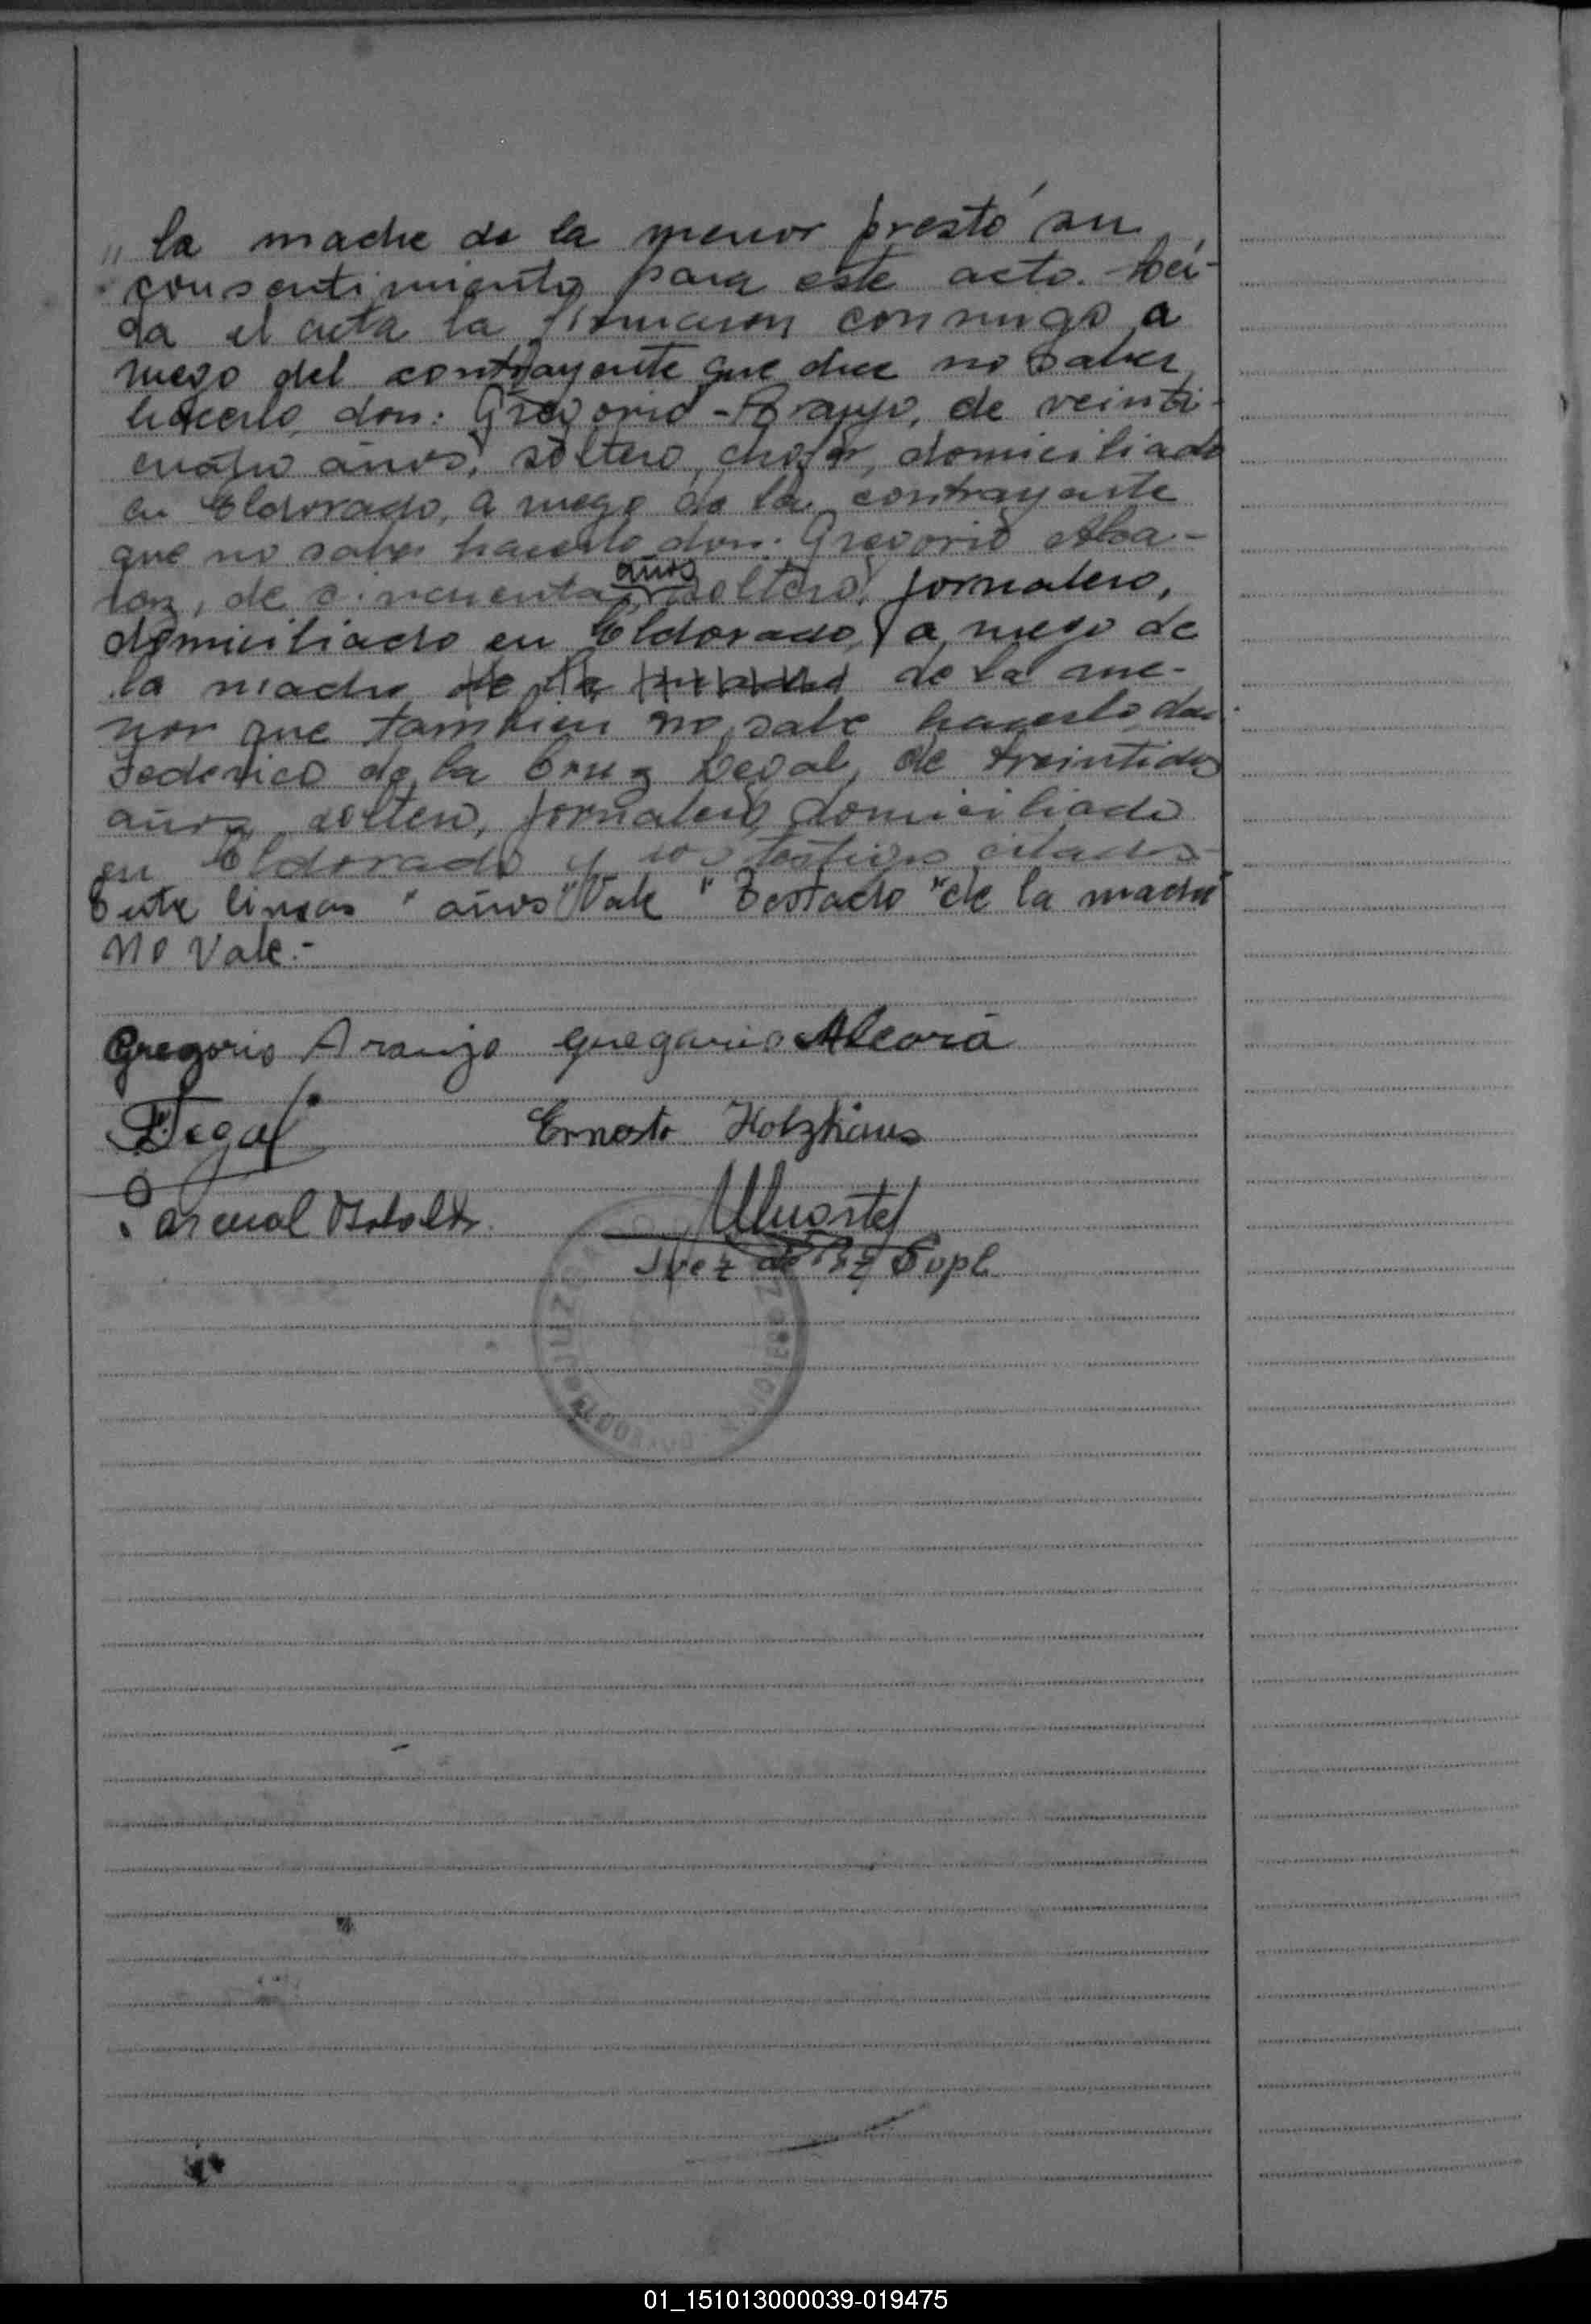 " la madre de la menor prestó su
consentimiento para este acto. Leí-
da el acta la firmaron conmigo a
ruego del contrayente que dice no saber
hacerlo don: Gregorio Araujo, de veinti-
cuatro años, soltero, chofer, domiciliado
en Eldorado, a ruego de la contrayente
que no sabe hacerlo don: Gregorio
de cincuenta años soltero, jornalero,
domiciliado en Eldorado, a ruego de
la madre de la madre de la me-
nor que tambien no sabe hacerlo don
Federico de la Cruz Legal, de treintidos
años, soltero, jornalero domiciliado
en Eldorado y los testigos citados
Entre lineas "años" Vale "Testado "de la madre"
no Vale.-
Gregorio Araujo Gregorio
Legal Ernesto Holzhaus
Juez de Paz Supl.
01_151013000039-019475